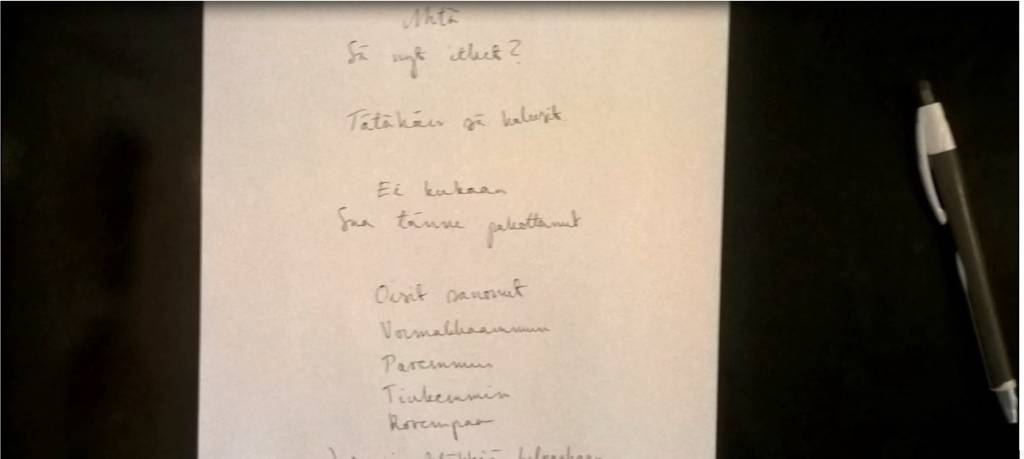 Mitä
Sä nyt itket?
Tätähän sä halusit
Ei kukaan
Sua tänne pakottanut
Oisit sanonut
Voimakkaammin
Paremmin
Tiukemmin
Kovempaa